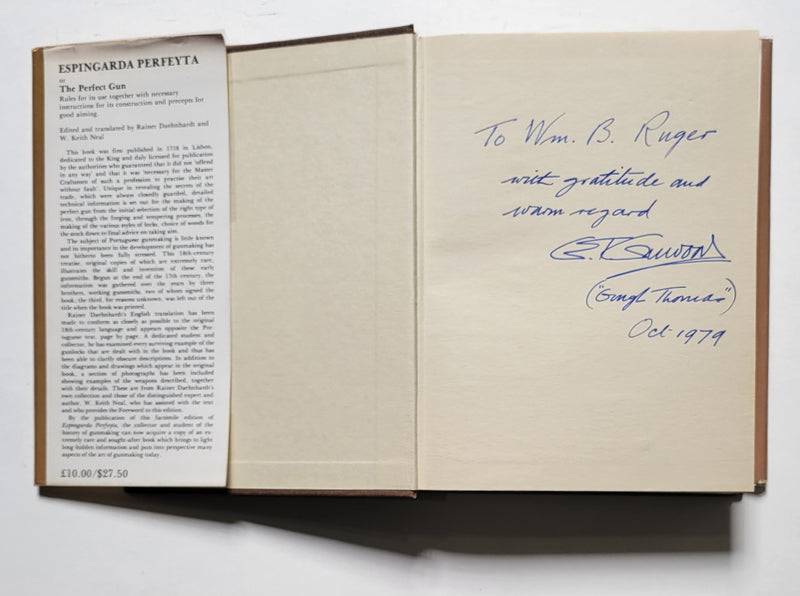 ESPINGARDA PERFEYTA
or
The Perfect Gun
Rules for its use together with necessary
instructions for its construction and precepts for
good aiming.
Edited and translated by Rainer Daehnhardt and
W. Keith Neal
This book was first published in 1718 in Lisbon,
dedicated to the King and duly licensed for publication
by the authorities who guaranteed that it did not 'offend
in any way' and that it was 'necessary for the Master
Craftsmen of such a profession to practise their art
without fault'. Unique in revealing the secrets of the
trade, which were always closely guarded, detailed
technical information is set out for the making of the
perfect gun from the initial selection of the right type of
iron, through the forging and tempering processes, the
making of the various styles of locks, choice of woods for
the stock down to final advice on taking aim.
The subject of Portuguese gunmaking is little known
and its importance in the development of gunmaking has
not hitherto been fully stressed. This 18th-century
treatise, original copies of which are extremely rare,
illustrates the skill and invention of these early
gunsmiths. Begun at the end of the 17th century, the
information was gathered over the years by three
brothers, working gunsmiths, two of whom signed the
book; the third, for reasons unknown, was left out of the
title when the book was printed.
Rainer Daehnhardt's English translation has been
made to conform as closely as possible to the original
18th-century language and appears opposite the Por-
tuguese text, page by page. A dedicated student and
collector, he has examined every surviving example of the
gunlocks that are dealt with in the book and thus has
been able to clarify obscure descriptions. In addition to
the diagrams and drawings which appear in the original
book, a section of photographs has been included
showing examples of the weapons described, together
with their details. These are from Rainer Daehnhardt's
own collection and those of the distinguished expert and
author, W. Keith Neal, who has assisted with the text
and who provides the Foreword to this edition.
By the publication of this facsimile edition of
Espingarda Perfeyta, the collector and student of the
history of gunmaking can now acquire a copy of an ex-
tremely rare and sought-after book which brings to light
long-hidden information and puts into perspective many
aspects of the art of gunmaking today.
£10.00/$27.50
To Wm. B. Ruger
with gratitude and
warm regard
("Gough Thomas")
Oct. 1979